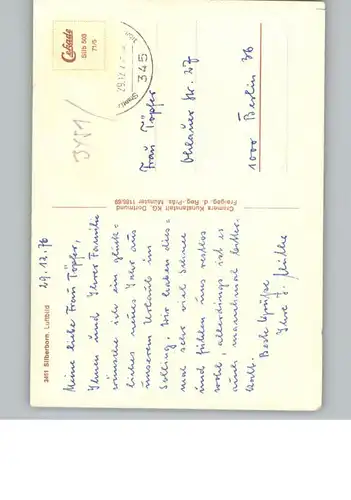 3451 Silberborn, Luftbild
29.12.76
Meine liebe Frau Töpfer,
Ihnen und Ihrer Familie
wünsche ich ein glück-
liches neues Jahr aus
unserem Urlaub im
Solling. Wir haben dies-
mal sehr viel Schnee
und fühlen uns restlos
wohl, allerdings ist es
auch manchmal bitter-
kalt.
Beste Grüße
Ihre
Cramers Kunstanstalt KG, Dortmund
Freigeg. d. Reg.-Präs. Münster
Cekade
Silb 503
345
Frau Töpfer
Ohlauer Str. 27
1000 Berlin 36